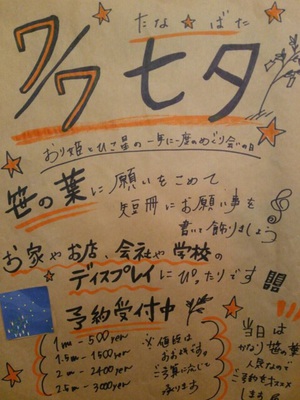 たな☆ばた
7/7 七夕
おり姫とひこ星の一年に一度のめぐり会いの日
笹の葉に願いをこめて
短冊にお願い事を
書いて飾りましょう
お家やお店、会社や学校の
ディスプレイにぴったりです!!!
予約受付中
1m - 500yen
1.5m - 1500yen
2m - 2400yen
2.5m - 3000yen
※値段は
おおよそです。
ご予算に応じて
承ります
当日は
かなり笹の葉
人気なので
ご予約をオススメ
します